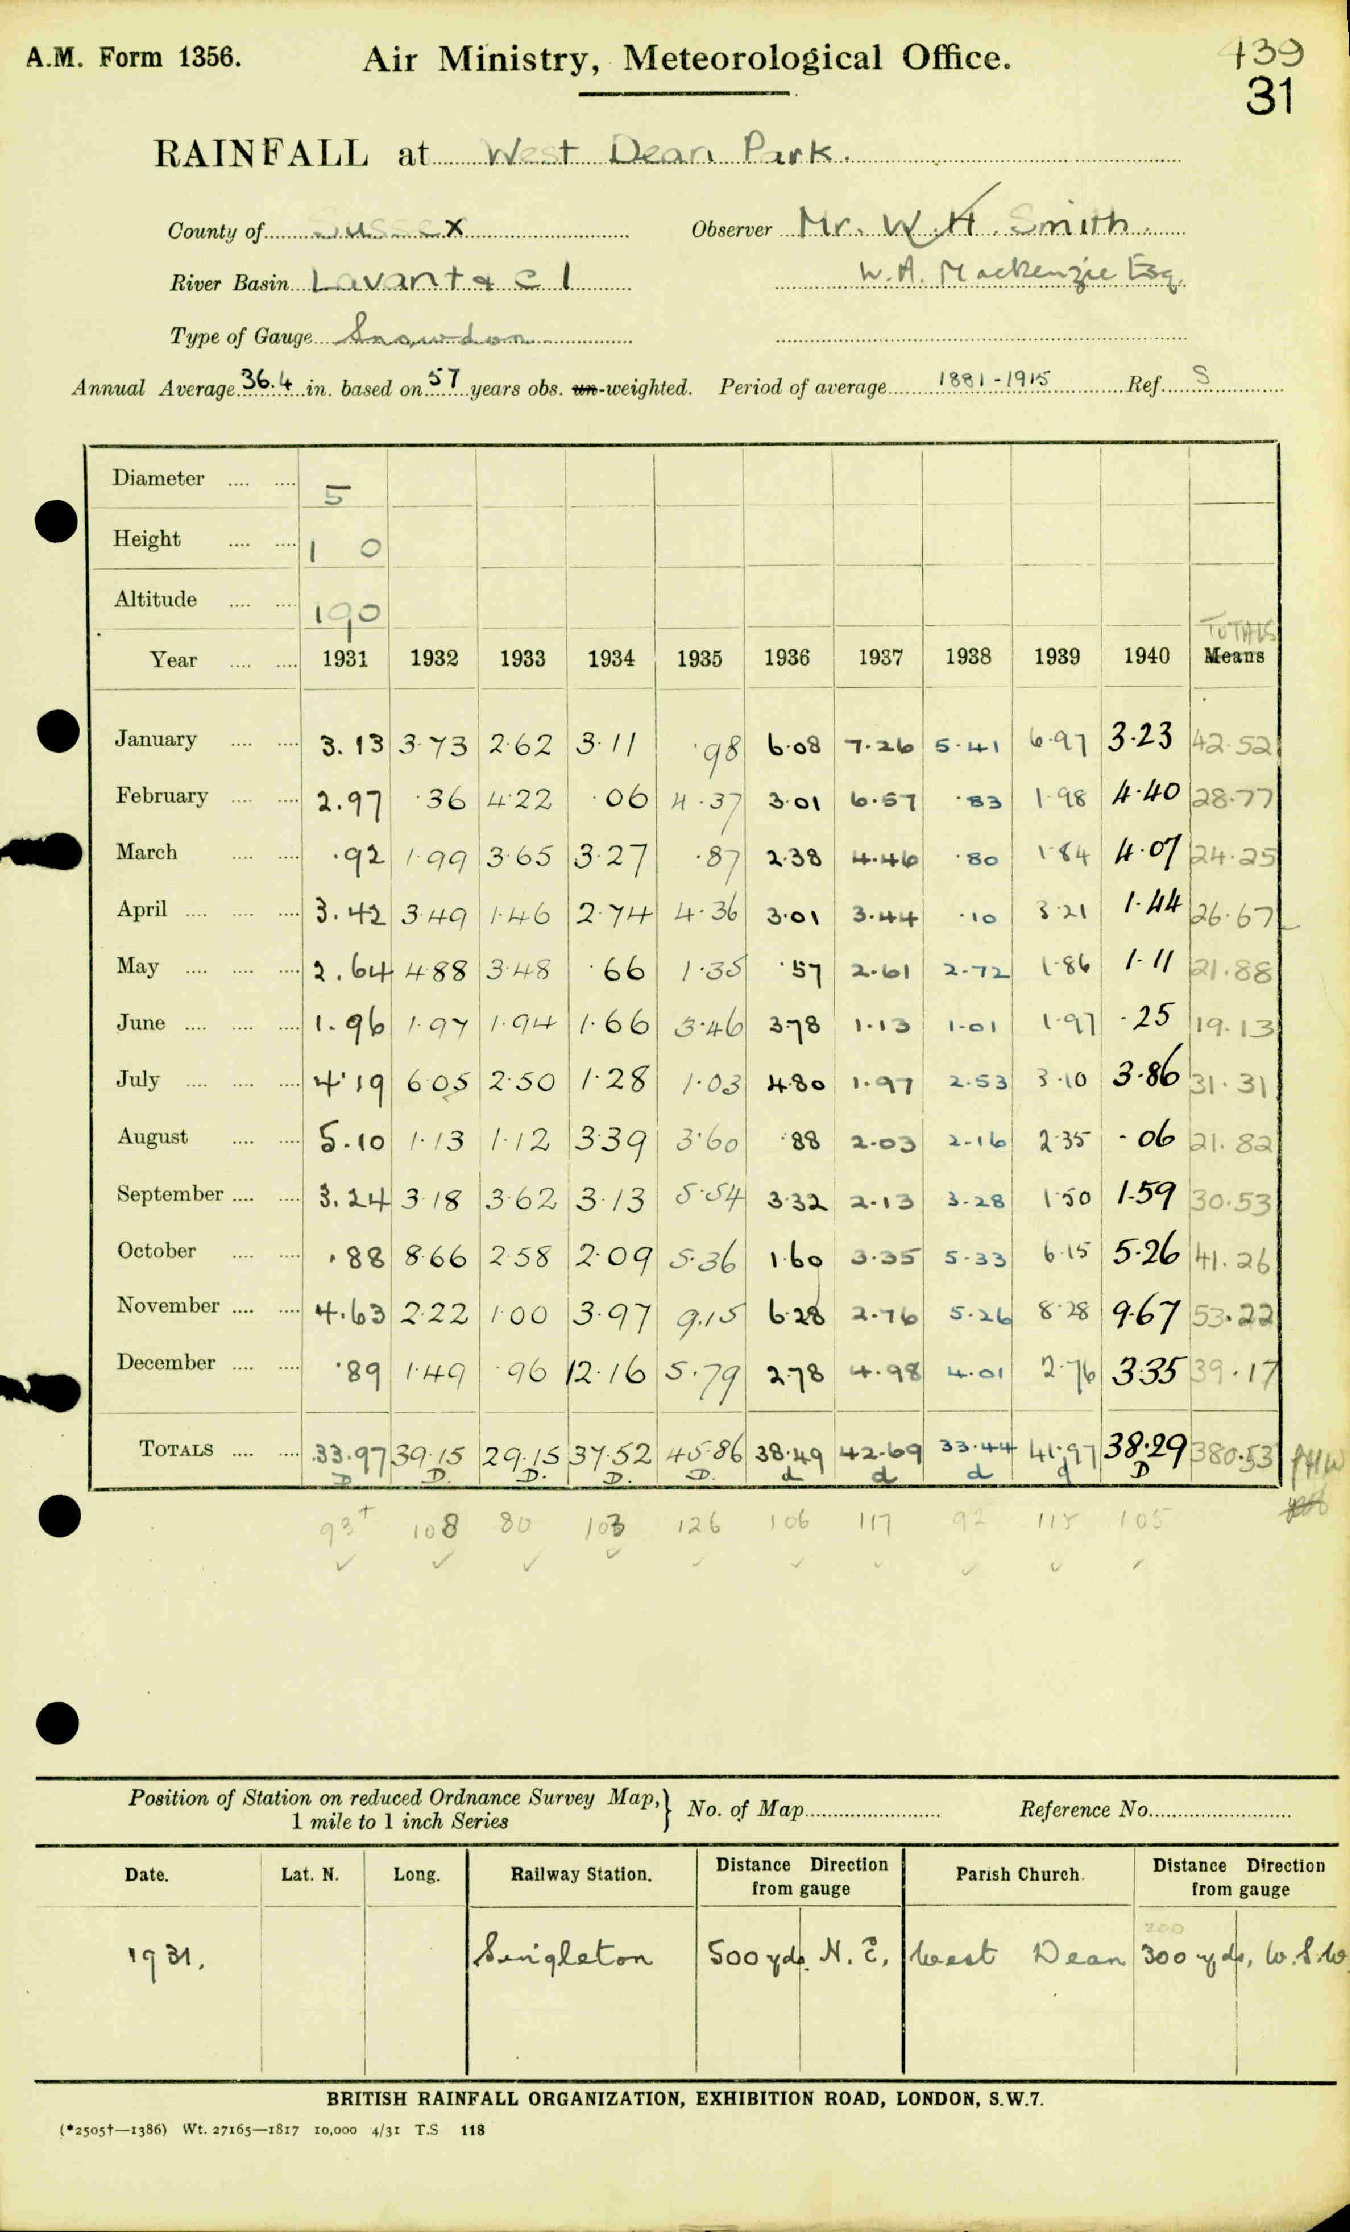 A.M. Form 1356. Air Ministry, Meteorological Office. 439
31
RAINFALL at West Dean Park.
County of Sussex Observer Mr. W. H. Smith.
River Basin Lavant & c 1 W. A. Mackenzie Esq.
Type of Gauge Snowdon
Annual Average 36.4 in. based on 57 years obs. un-weighted. Period of average 1881-1915 Ref. S
Diameter 5
Height 1 0
Altitude 190
TOTALS
Year 1931 1932 1933 1934 1935 1936 1937 1938 1939 1940 Means
January 3.13 3.73 2.62 3.11 .98 6.08 7.26 5.41 6.97 3.23 42.52
February 2.97 .36 4.22 .06 4.37 3.01 6.57 .83 1.98 4.40 28.77
March .92 1.99 3.65 3.27 .87 2.38 4.46 .80 1.84 4.07 24.25
April 3.42 3.49 1.46 2.74 4.36 3.01 3.44 .10 3.21 1.44 26.67
May 2.64 4.88 3.48 .66 1.35 .57 2.61 2.72 1.86 1.11 21.88
June 1.96 1.97 1.94 1.66 3.46 3.78 1.13 1.01 1.97 .25 19.13
July 4.19 6.05 2.50 1.28 1.03 4.80 1.97 2.53 3.10 3.86 31.31
August 5.10 1.13 1.12 3.39 3.60 .88 2.03 2.16 2.35 .06 21.82
September 3.24 3.18 3.62 3.13 5.54 3.32 2.13 3.28 1.50 1.59 30.53
October .88 8.66 2.58 2.09 5.36 1.60 3.35 5.33 6.15 5.26 41.26
November 4.63 2.22 1.00 3.97 9.15 6.28 2.76 5.26 8.28 9.67 53.22
December .89 1.49 .96 12.16 5.79 2.78 4.98 4.01 2.76 3.35 39.17
TOTALS 33.97 39.15 29.15 37.52 45.86 38.49 42.69 33.44 41.97 38.29 380.53
D D. D. D. D. d d d d D
93+ 108 80 103 126 106 117 92 115 105
Position of Station on reduced Ordnance Survey Map, } No. of Map Reference No.
1 mile to 1 inch Series
Date. Lat. N. Long. Railway Station. Distance Direction from gauge Parish Church. Distance Direction from gauge
200
1931. Singleton 500 yds. N. E. West Dean 300 yds, W.S.W
BRITISH RAINFALL ORGANIZATION, EXHIBITION ROAD, LONDON, S.W.7.
(*2505†—1386) Wt. 27165—1817 10,000 4/31 T.S 118